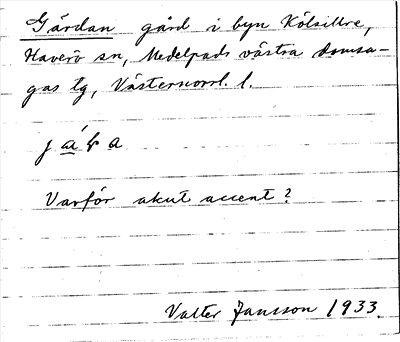 Gärdan gård i byn Kölsillre,
Haverö sn, Medelpads västra domsa-
gas tg, Västernorrl. l.
Varför akut accent?
Valter Jansson 1933.